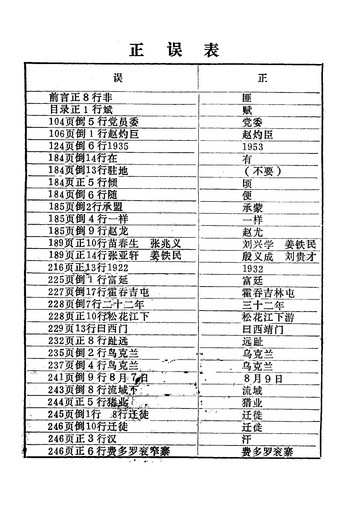 正误表
误 正
前言正8行非 匪
目录正1行斌 赋
104页倒5行党员委 党委
106页倒1行赵灼巨 赵灼臣
124页倒6行1935 1953
184页倒14行在 有
184页倒13行驻地 (不要)
184页正5行倾 顷
184页倒6行随 便
185页倒2行承盟 承蒙
185页倒4行一样 一样
185页倒9行赵龙 赵尤
189页正10行苗春生 张兆义 刘兴学 姜铁民
189页正14行张亚轩 姜铁民 殷义成 刘贵才
216页正13行1922 1932
225页倒1行富延 富廷
227页倒17行霍吞吉屯 霍吞吉林屯
228页倒7行二十二年 三十二年
228页正10行松花江下 松花江下游
229页13行曰西门 曰西靖门
232页正8行趾远 远趾
235页倒2行乌克兰 乌克兰
237页倒4行乌克兰 乌克兰
241页倒9行8月7日 8月9日
243页倒8行流城下 流域
244页正5行猎业 猎业
245页倒1行 8行迁徒 迁徙
246页倒10行迁徒 迁徙
246页正3行汉 汗
246页正6行费多罗衮窄寨 费多罗衮寨